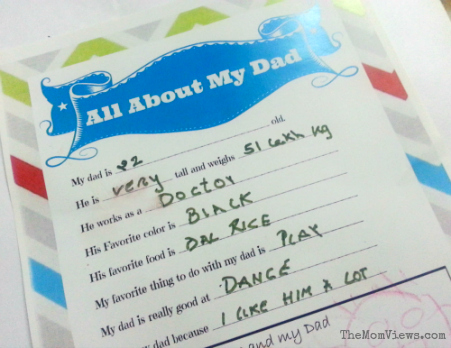 All About My Dad
My dad is 22 old.
He is very tall and weighs 51 Lakh kg
He works as a Doctor
His Favorite color is BLACK
His favorite food is DAL RICE
My favorite thing to do with my dad is PLAY
My dad is really good at DANCE
my dad because I LIKE HIM A LOT
and my Dad
TheMomViews.com